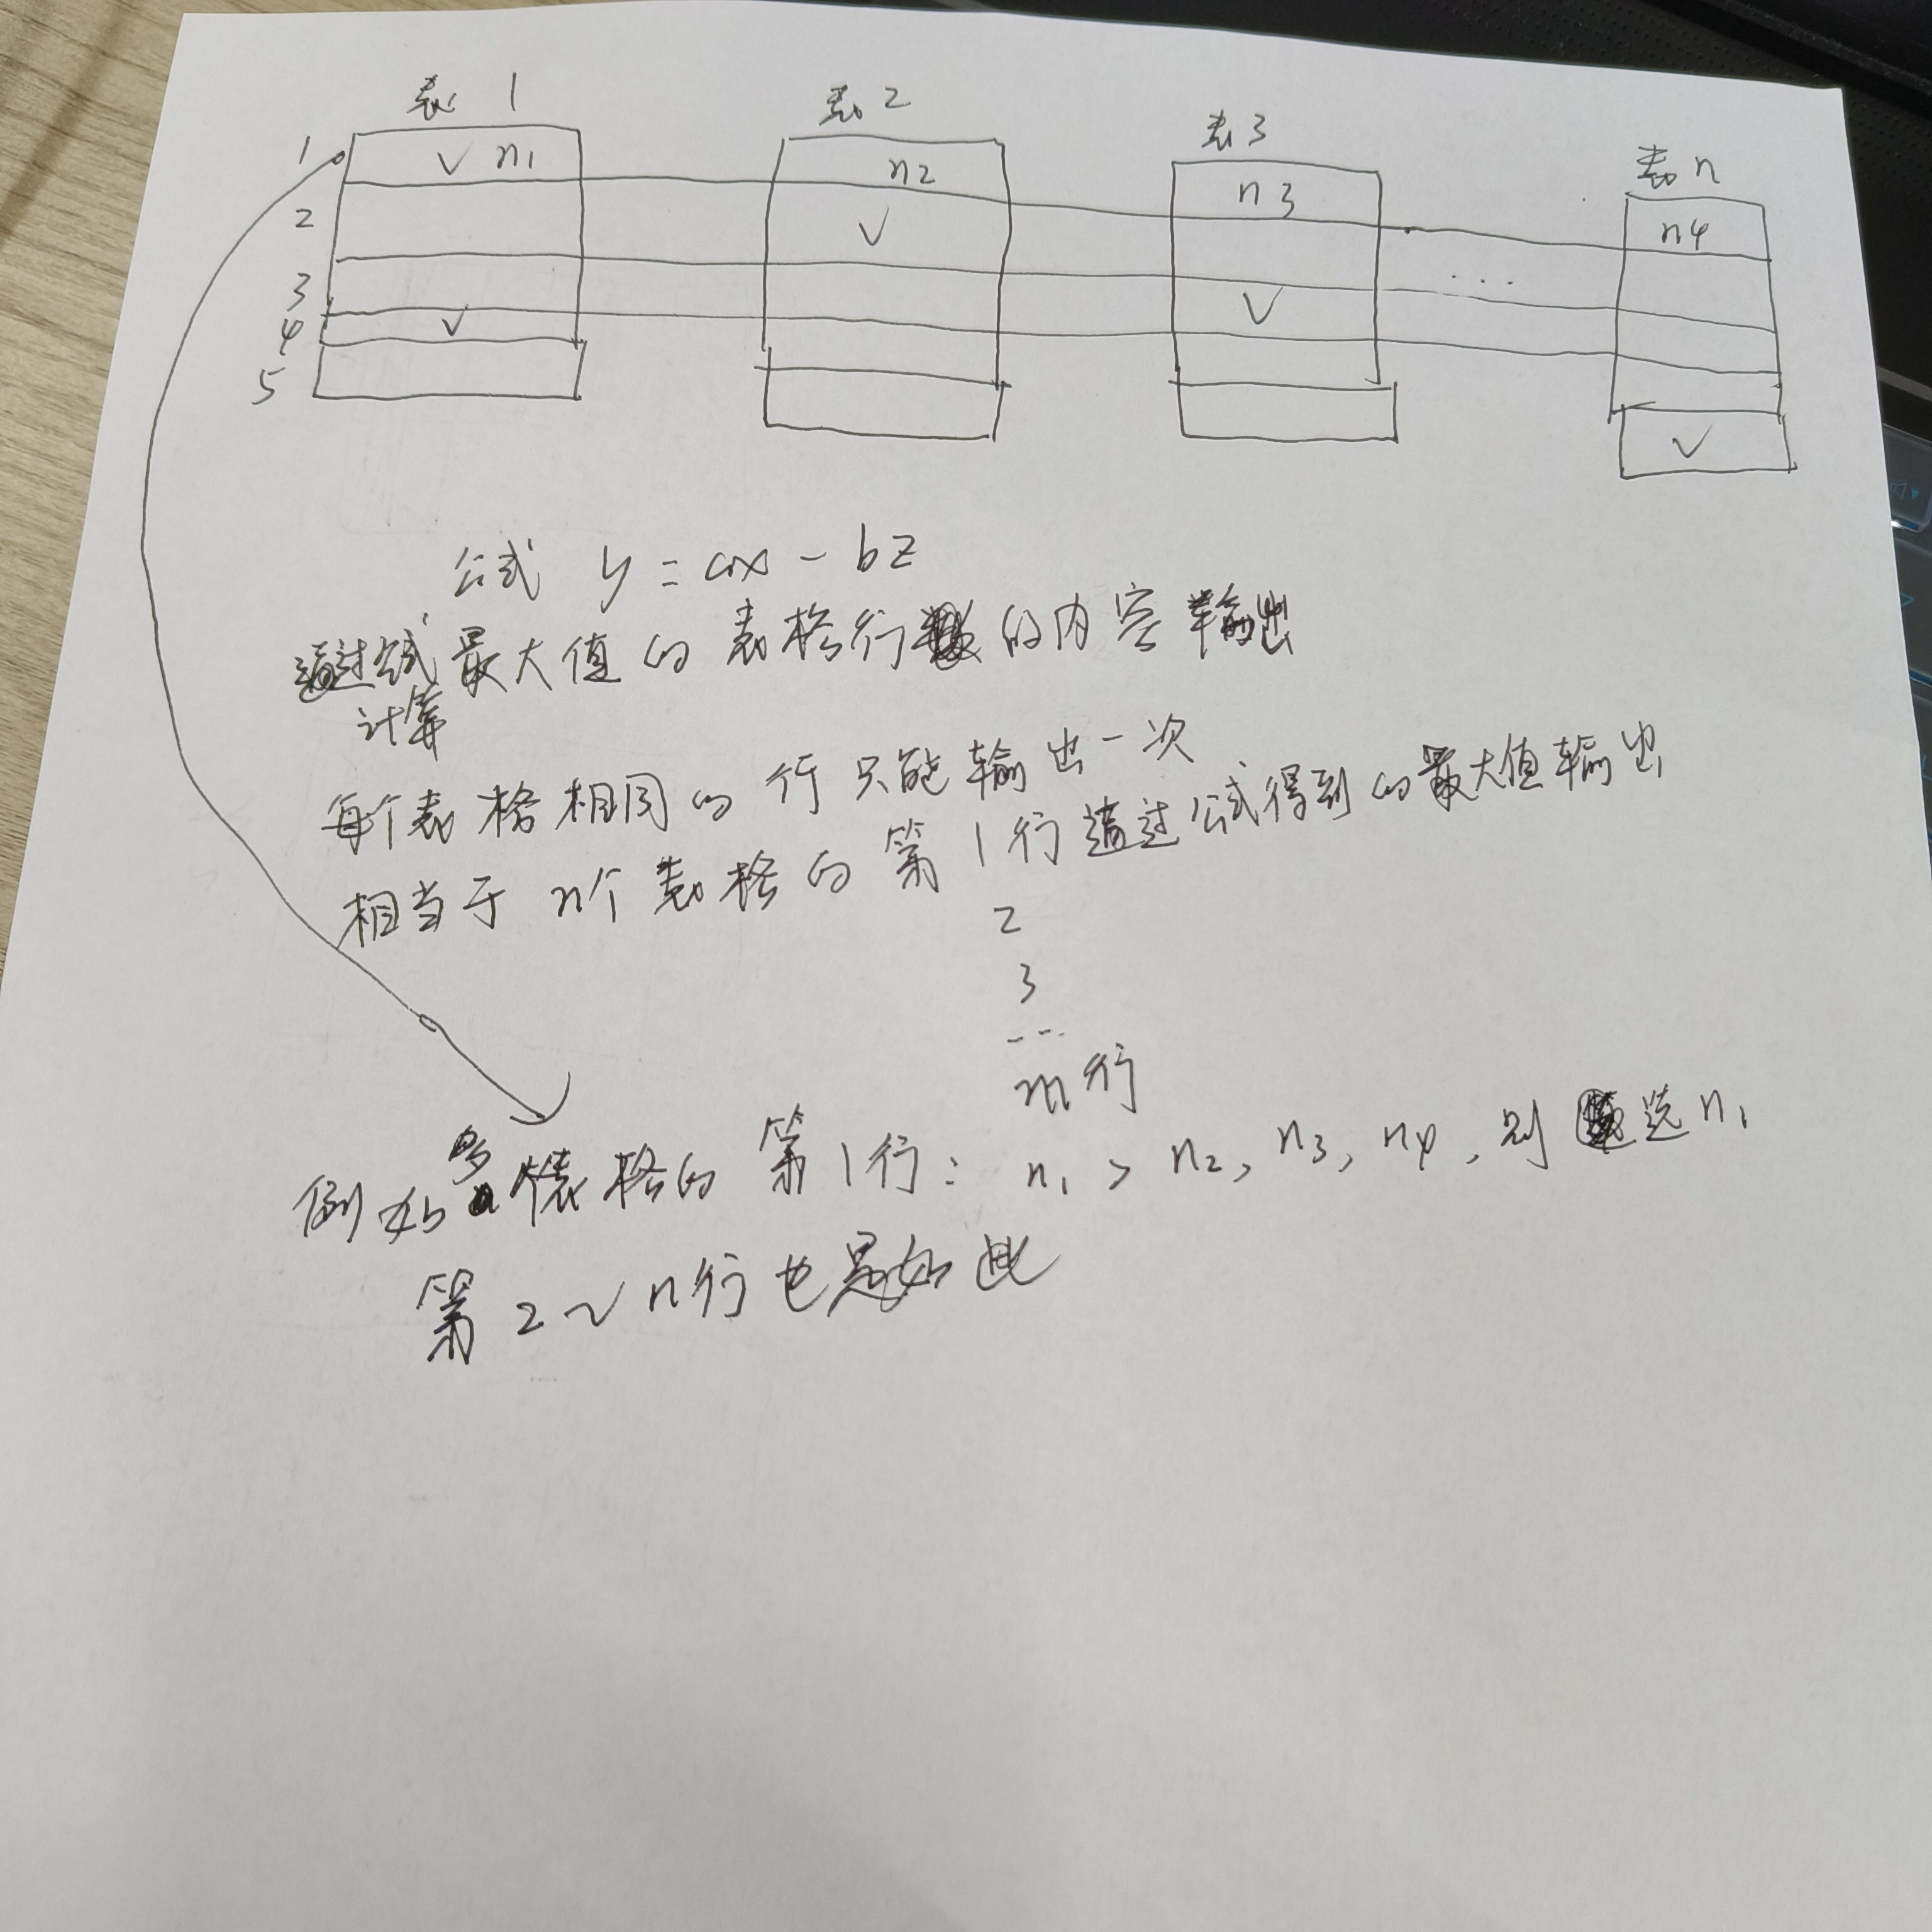 表1 表2 表3 表n
1 ✓ n1 n2 n3 n4
2 ✓
...
3 ✓
4 ✓
5 ✓
公式 y = ax - bz
通过公式最大值的表格行的内容输出
计算
每个表格相同的行只能输出一次
相当于n个表格的第1行通过公式得到的最大值输出
2
3
...
m行
例如多个表格的第1行: n1 > n2, n3, n4, 则选n1
第2~n行也是如此